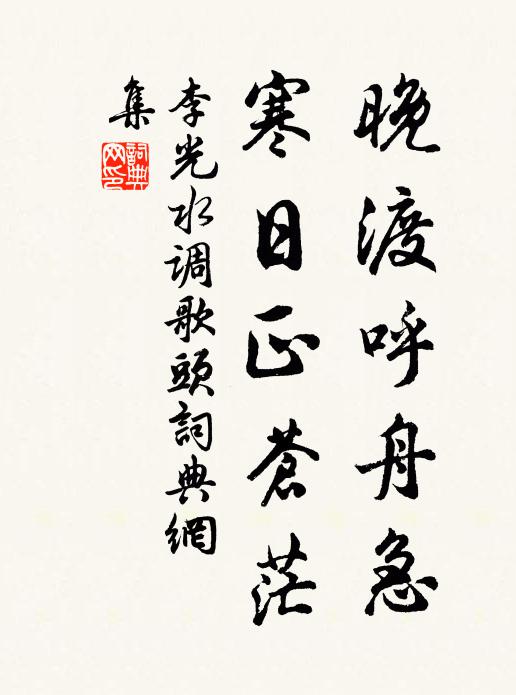 晚渡呼舟急
寒日正苍茫
李光水调歌頭詞典網
集
詞典
网印